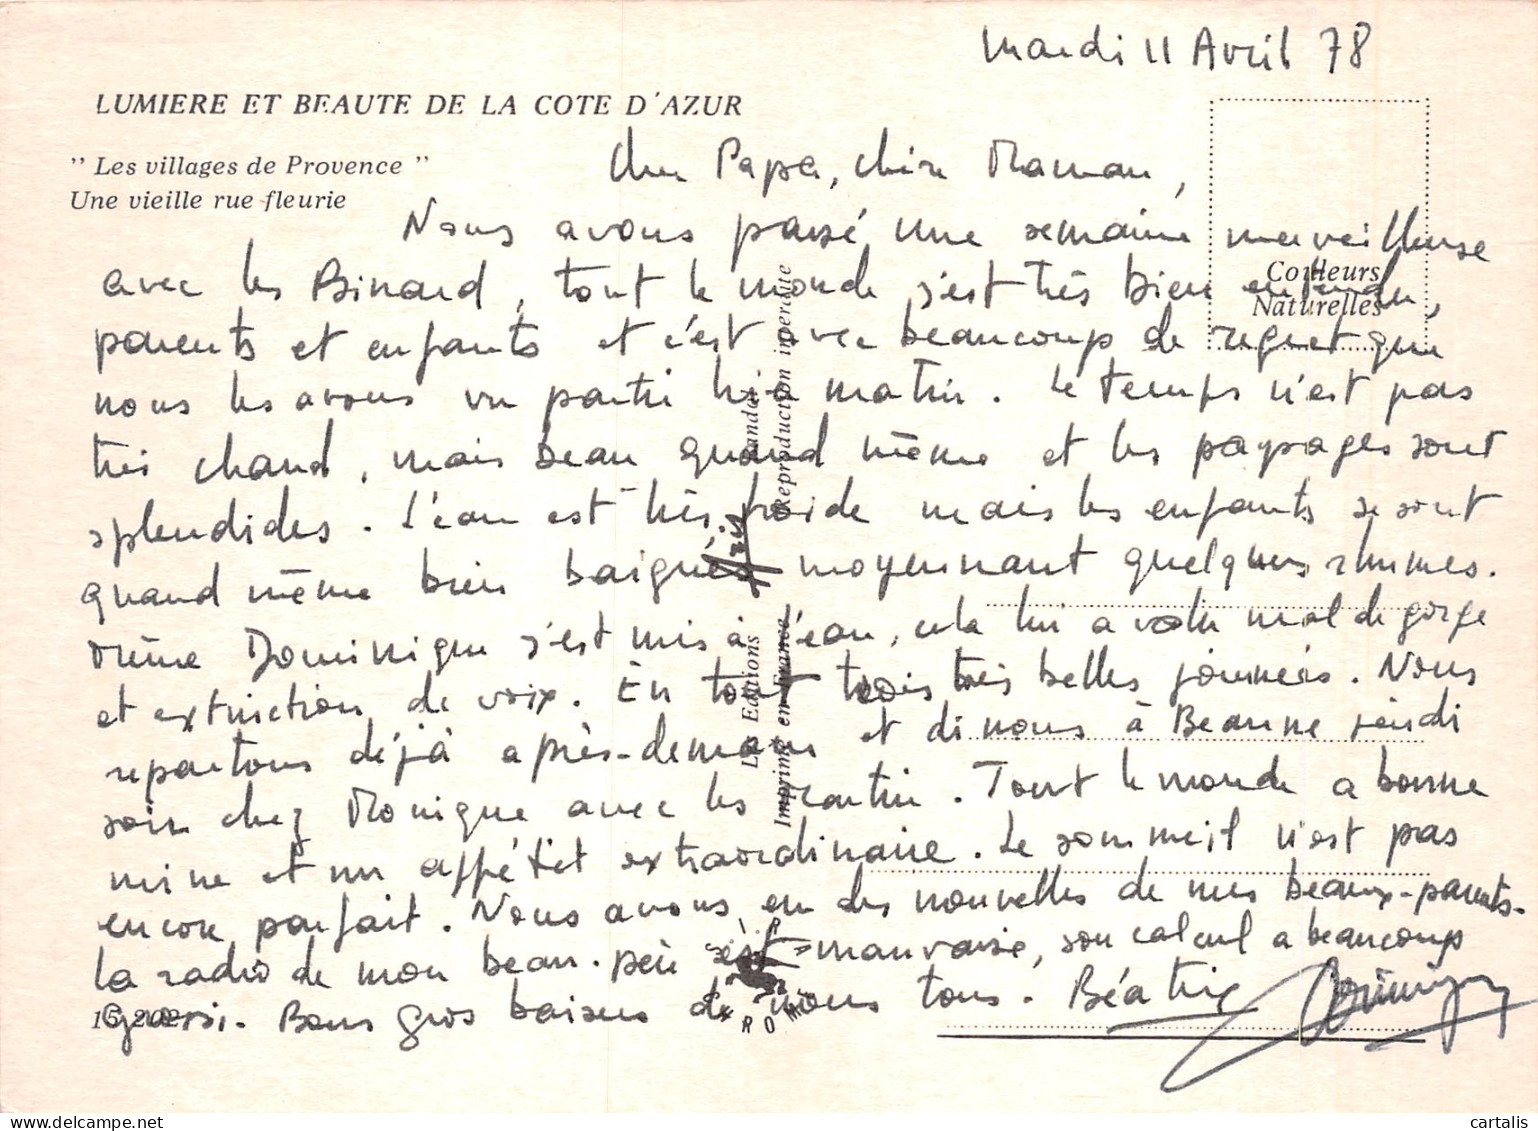 Mardi 11 Avril 78
LUMIERE ET BEAUTE DE LA COTE D'AZUR
" Les villages de Provence "
Une vieille rue fleurie
Couleurs
Naturelles
Cher Papa, chère Maman,
Nous avons passé une semaine merveilleuse
avec les Binard, tout le monde s'est très bien entendu,
parents et enfants et c'est avec beaucoup de regret que
nous les avons vu partir hier matin. Le temps n'est pas
très chaud, mais beau quand même et les paysages sont
splendides. L'eau est très froide mais les enfants se sont
quand même bien baignés moyennant quelques rhumes.
Même Dominique s'est mis à l'eau, cela lui a valu mal de gorge
et extinction de voix. En tout trois très belles journées. Nous
repartons déjà après-demain et dînons à Beaune jeudi
soir chez Monique avec les Martin. Tout le monde a bonne
mine et un appétit extraordinaire. Le sommeil n'est pas
encore parfait. Nous avons eu des nouvelles de mes beaux-parents.
La radio de mon beau-père est mauvaise, son calcul a beaucoup
grossi. Bons gros baisers de nous tous. Béatrix Dominique
Les Editions
Reproduction interdite
Imprimé en France